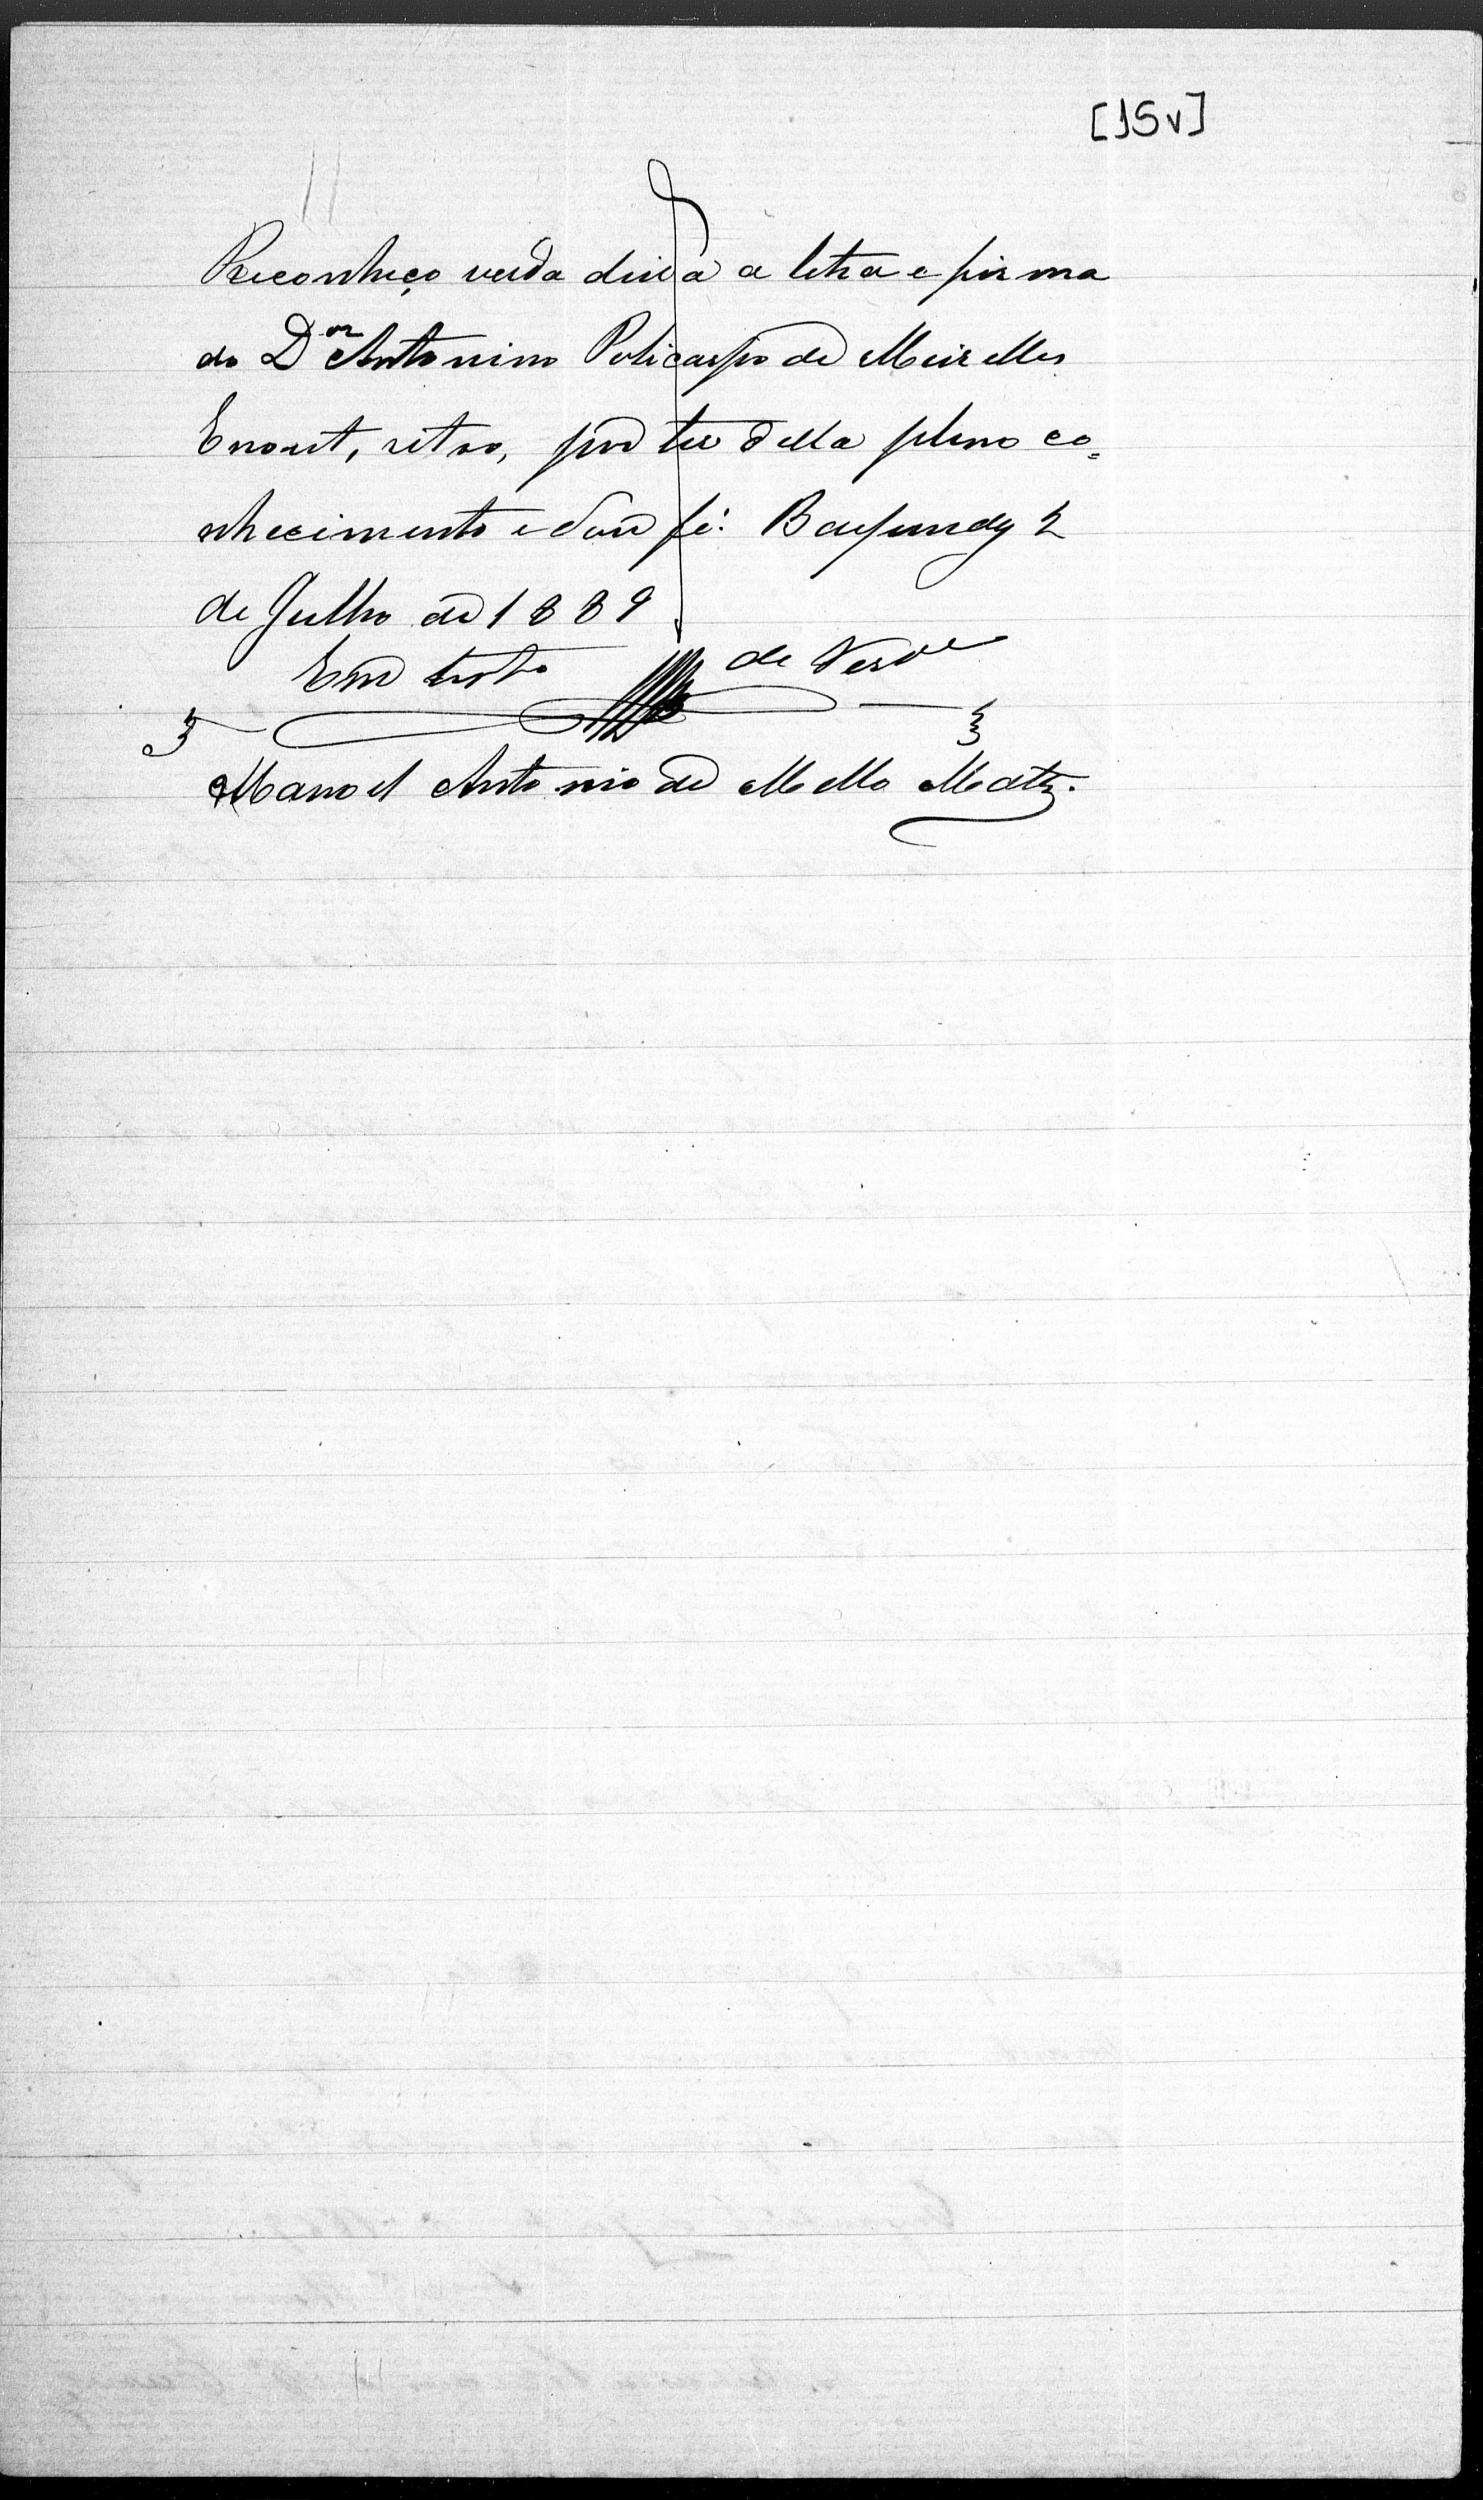 [15v]
Reconheço verdadeira a letra e firma
do Dor Antonino Policarpo de Meirelles
Enout, retro, por ter della pleno co=
nhecimento e dou fé. Baependy 2
de Julho de 1889
Em testo de Verde
Manoel Antonio de Mello Mattos.